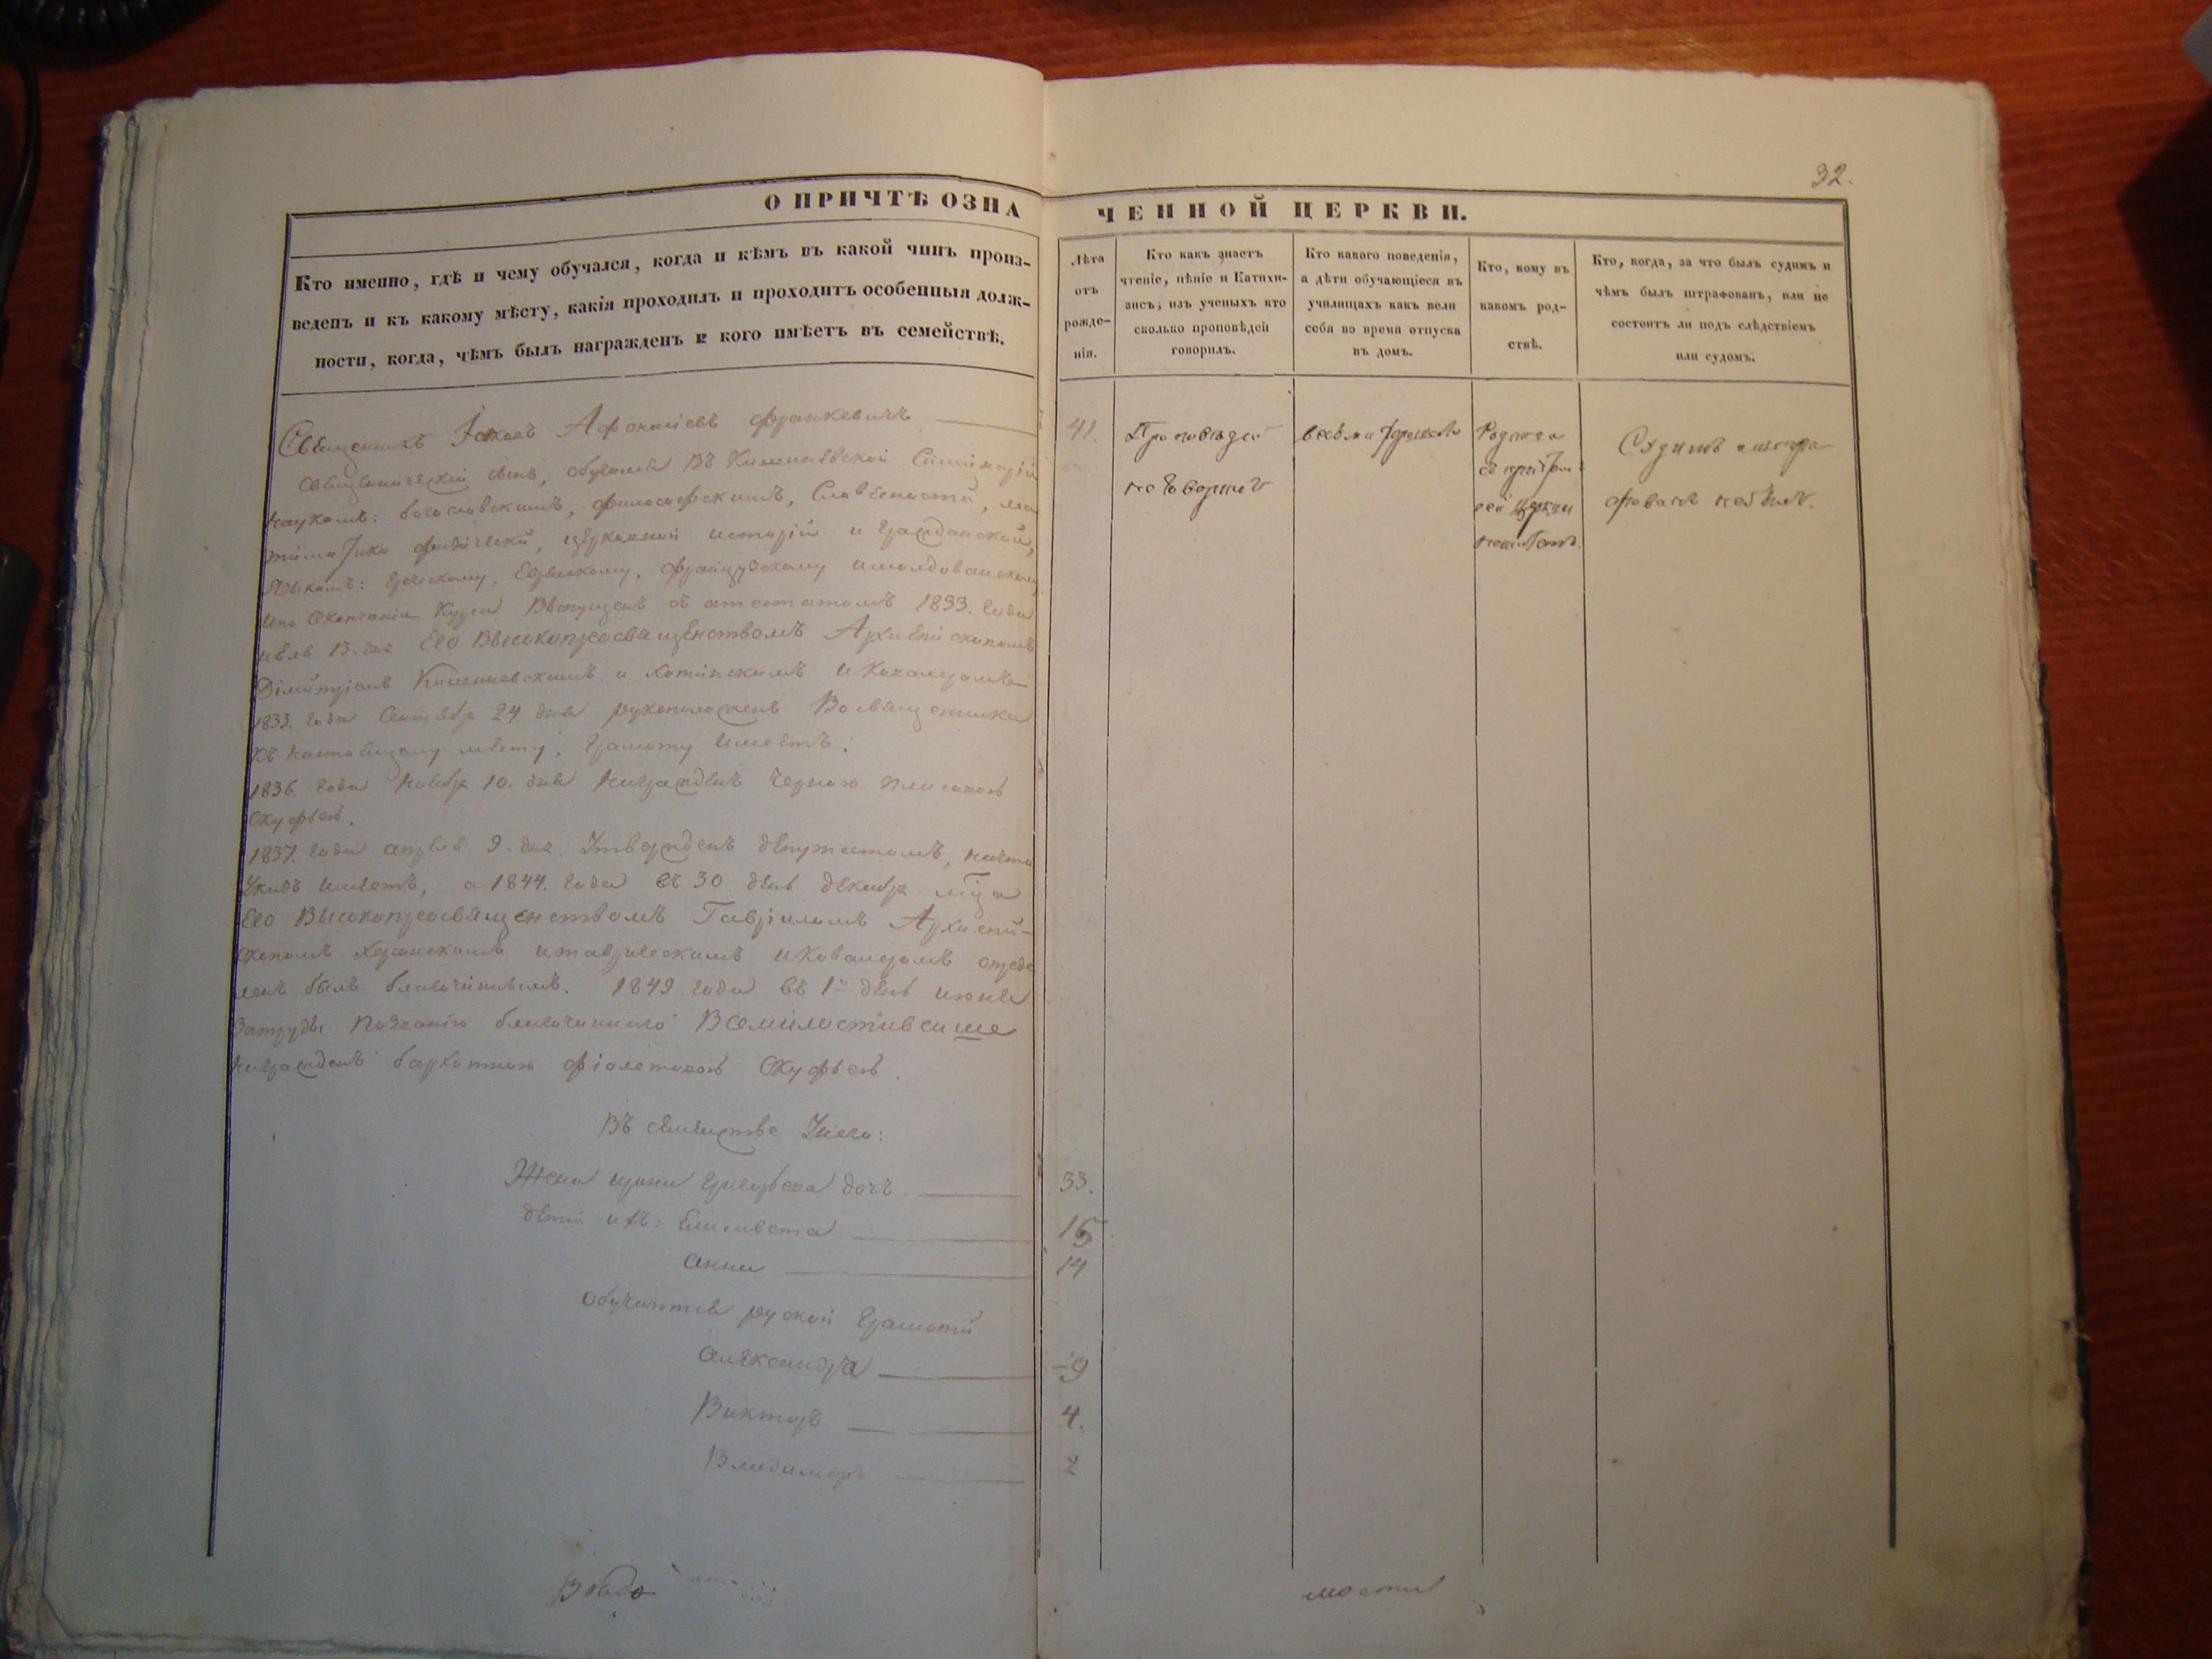 32.
О ПРИЧТѢ ОЗНА
ЧЕННОЙ ЦЕРКВИ.
Кто именно, гдѣ и чему обучался, когда и кѣмъ въ какой чинъ произ-
веденъ и къ какому мѣсту, какія проходилъ и проходитъ особенныя долж-
ности, когда, чѣмъ былъ награжденъ и кого имѣетъ въ семействѣ.
Лѣта
отъ
рожде-
нія.
Кто какъ знаетъ
чтеніе, пѣніе и Катихи-
зисъ; изъ ученыхъ кто
сколько проповѣдей
говорилъ.
Кто какого поведенія,
а дѣти обучающіеся въ
училищахъ какъ вели
себя во время отпуска
въ домъ.
Кто, кому въ
какомъ род-
ствѣ.
Кто, когда, за что былъ судимъ и
чѣмъ былъ штрафованъ, или не
состоитъ ли подъ слѣдствіемъ
или судомъ.
Священникъ Афанасіевъ Франкевичъ
священническій сынъ, обучался въ Кишиневской Семинаріи
наукамъ: богословскимъ, философскимъ, Словесности, ма
физической, церковной исторіи и гражданской,
языкамъ: греческому, Еврейскому, французскому и молдованскому
и по окончаніи курса выпущенъ съ атестатомъ 1833. года
13. дня Его Высокопреосвященствомъ Архіепископомъ
Димитріемъ Кишиневскимъ и Хотинскимъ и Кавалеромъ
1833. года Сентябр 24. дня рукоположенъ во священника
къ настоящему мѣсту, грамоту имеетъ.
1836. года Ноябр 10. дня награжденъ черною плисовою
скуфьею.
1837. года 9. дня Утвержденъ депутатомъ, на что
Указъ имеетъ, а 1844. года въ 30 день декабр мца
Его Высокопреосвященствомъ Гавріиломъ Архіепи-
скопомъ херсонскимъ и таврическимъ и Кавалеромъ опреде
ленъ былъ благочиннымъ. 1849 года въ 1й день июня
За труды по званію благочиннаго Всемилостивейше
награжденъ бархатною фіолетовою скуфьею.
41.
Проповедей
не говорилъ
весьма хорошаго
Родства
съ
сей церкви
не имеетъ.
Судимъ и штра
фованъ небылъ.
Въ семействе Унего:
Жена ирина григорьева дочь 33.
дети ихъ: Елисавета 16
анна 14
Обучаются руской грамоти
александра 9
Викторъ 4.
Владимеръ 2
мости